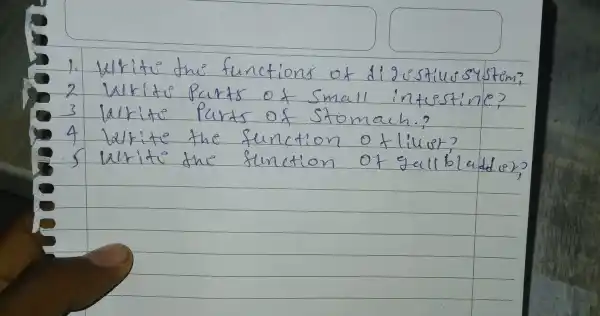 1. Write the functions of digestive system?
2 Write Parts of Small intestine?
3 Write Parts of Stomach.?
4 Write the function of liver?
5 Write the function of gall bladder?